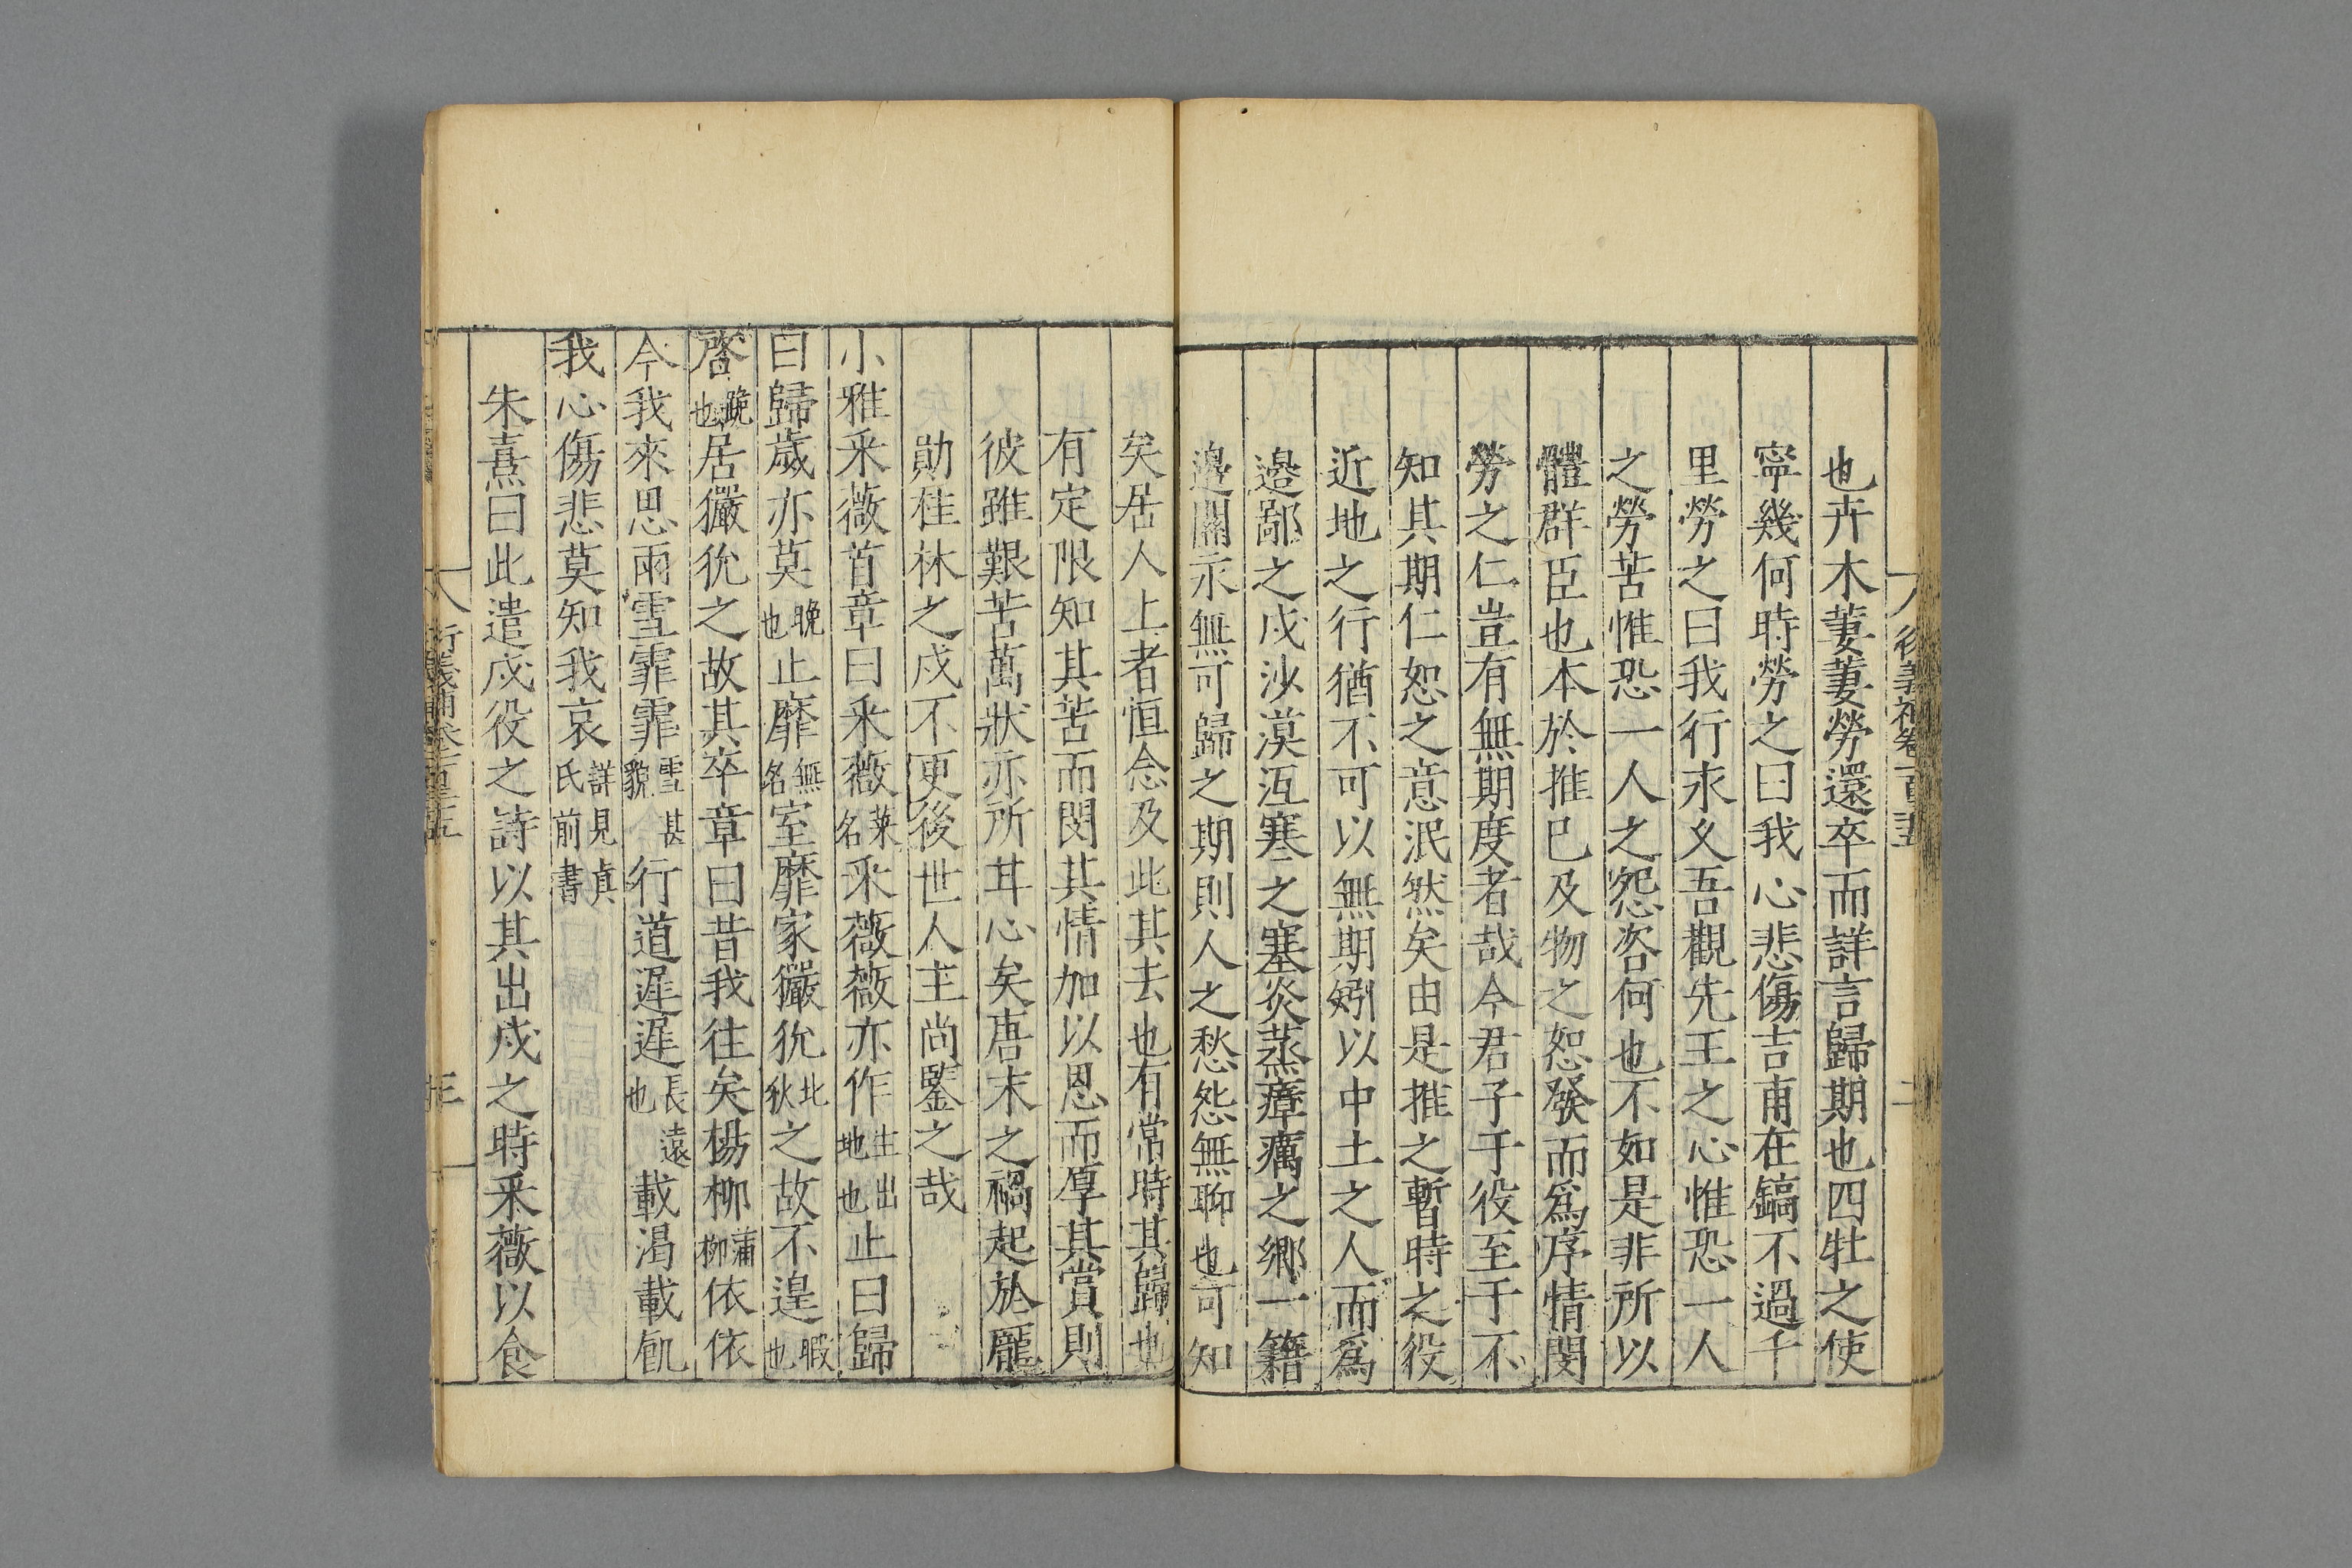 也卉木萋萋勞還卒而詳言歸期也四牡之使
寧幾何時勞之曰我心悲傷吉甫在鎬不過千
里勞之曰我行永久吾觀先王之心惟恐一人
之勞苦惟恐一人之怨咨何也不如是非所以
體群臣也本於推已及物之恕發而為序情閔
勞之仁豈有無期度者哉今君子于役至于不
知其期仁恕之意泯然矣由是推之暫時之役
近地之行猶不可以無期矧以中土之人而爲
邉鄙之戍沙漠沍寒之塞炎蒸瘴癘之鄉一籍
邉關永無可歸之期則人之愁怨無聊也可知
矣居人上者恒念及此其去也有常時其歸也
有定限知其苦而閔其情加以恩而厚其賞則
彼雖艱苦萬狀亦所甘心矣唐末之禍起於龎
勛桂林之戍不更後世人主尚鑒之哉
小雅采薇首章曰采薇菜名采薇薇亦作生出地也止曰歸
曰歸歲亦莫晚也止靡無名室靡家玁狁北狄之故不遑暇也
啓跪也居玁狁之故其卒章曰昔我往矣楊柳蒲柳依依
今我來思雨雪霏霏雪甚貌行道遲遲長遠也載渴載飢
我心傷悲莫知我哀詳見真氏前書
朱熹曰此遣戍役之詩以其出戍之時采薇以食